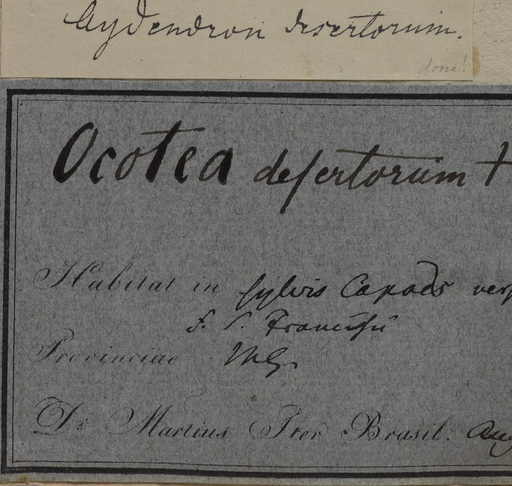 Aydendron desertorum.
done!
Ocotea desertorum †
Habitat in sylvis Capoës vers
f. S. Francisci
Provinciae MG.
Dr. Martius Iter Brasil. Aug